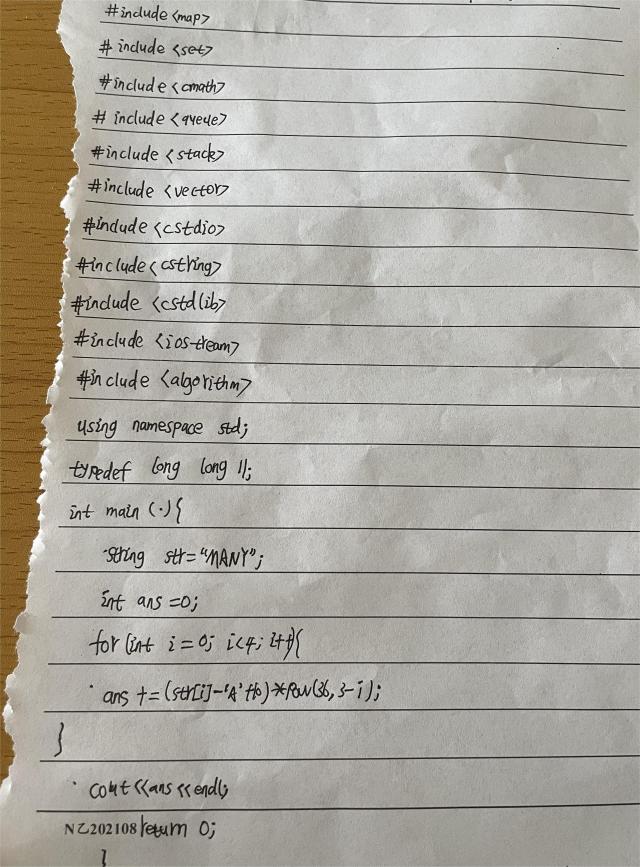 #include <map>
# include <set>
#include <cmath>
# include <queue>
#include <stack>
#include <vector>
#include <cstdio>
#include <cstring>
#include <cstdlib>
#include <iostream>
#include <algorithm>
using namespace std;
typedef long long ll;
int main (·){
string str="MANY";
int ans =0;
for (int i=0; i<4; i++){
ans += (str[i]-'A'+10)*pow(36,3-i);
}
cout<<ans<<endl;
NZ202108 return 0;
}